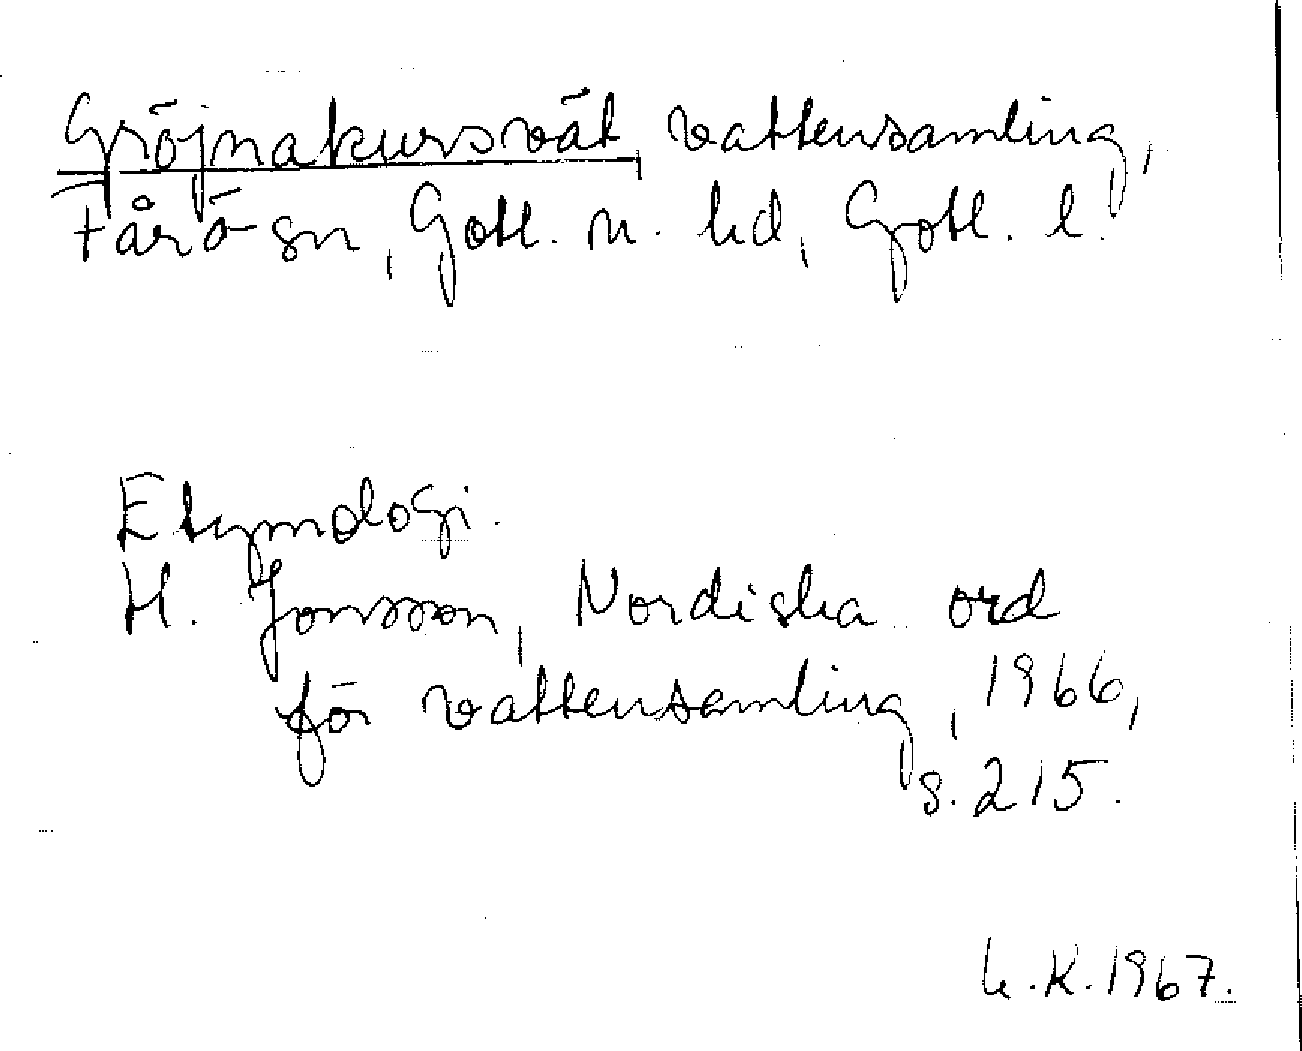 Gröjnakursvät vattensamling,
Fårö sn, Gotl. n. hd, Gotl. l.
Etymologi.
H. Jonsson, Nordiska ord
för vattensamling, 1966,
s. 215.
L.K. 1967.